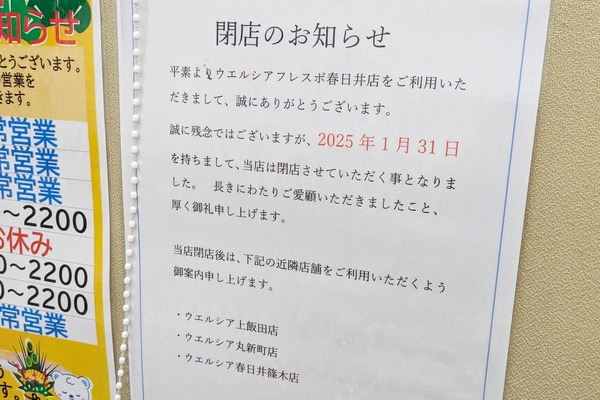 らせ
とうございます。
の営業を
きます。
常営業
常営業
常営業
~2200
お休み
0~2200
0~2200
常営業
閉店のお知らせ
平素よりウエルシアフレスポ春日井店をご利用いた
だきまして、誠にありがとうございます。
誠に残念ではございますが、2025年1月31日
を持ちまして、当店は閉店させていただく事となりま
した。 長きにわたりご愛顧いただきましたこと、
厚く御礼申し上げます。
当店閉店後は、下記の近隣店舗をご利用いただくよう
御案内申し上げます。
・ウエルシア上飯田店
・ウエルシア丸新町店
・ウエルシア春日井篠木店